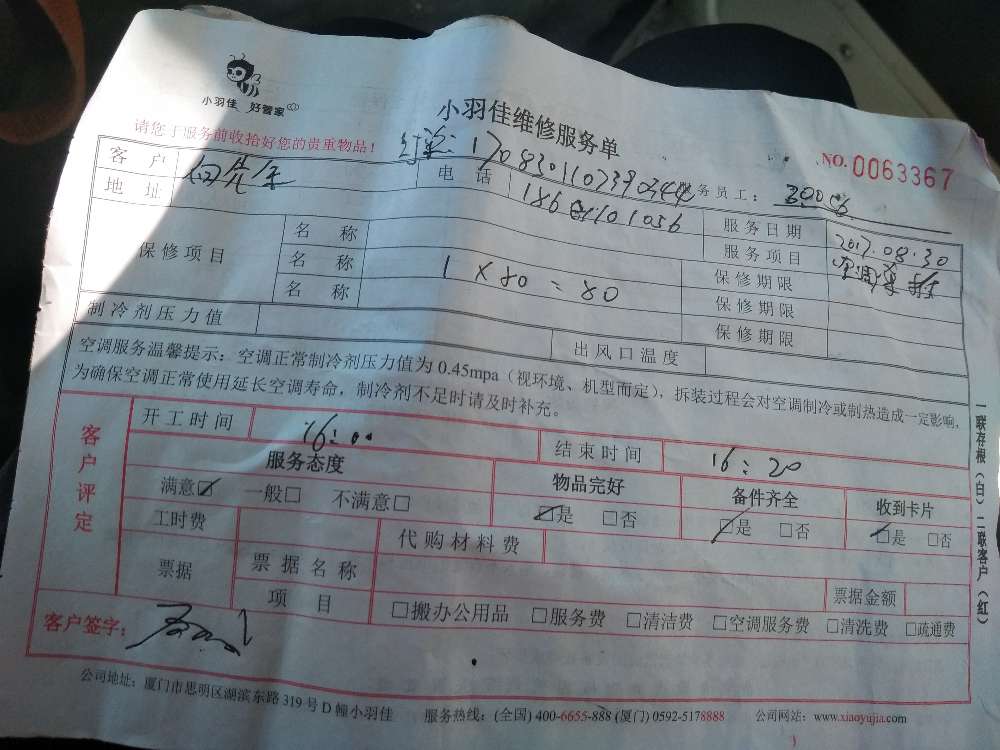 小羽佳 好管家
小羽佳维修服务单
请您于服务前收拾好您的贵重物品!
NO. 0063367
170830110739034 务员工:
客户 先生 电话 186 1101056 服务日期 2017.08.30
地址 服务项目 空调
保修项目 名称 保修期限
名称 1×80=80 保修期限
名称 保修期限
制冷剂压力值 出风口温度
空调服务温馨提示:空调正常制冷剂压力值为0.45mpa(视环境、机型而定),拆装过程会对空调制冷或制热造成一定影响,
为确保空调正常使用延长空调寿命,制冷剂不足时请及时补充。
客户评定
开工时间 16:00 结束时间 16:20
服务态度 物品完好 备件齐全 收到卡片
满意☑ 一般□ 不满意□ ☑是 □否 ☑是 □否 ☑是 □否
工时费 代购材料费
票据 票据名称 票据金额
项目 □搬办公用品 □服务费 □清洁费 □空调服务费 □清洗费 □疏通费
客户签字:
公司地址:厦门市思明区湖滨东路319号D幢小羽佳 服务热线:(全国) 400-6655-888 (厦门) 0592-5178888 公司网站:www.xiaoyujia.com
一联存根(白)二联客户(红)